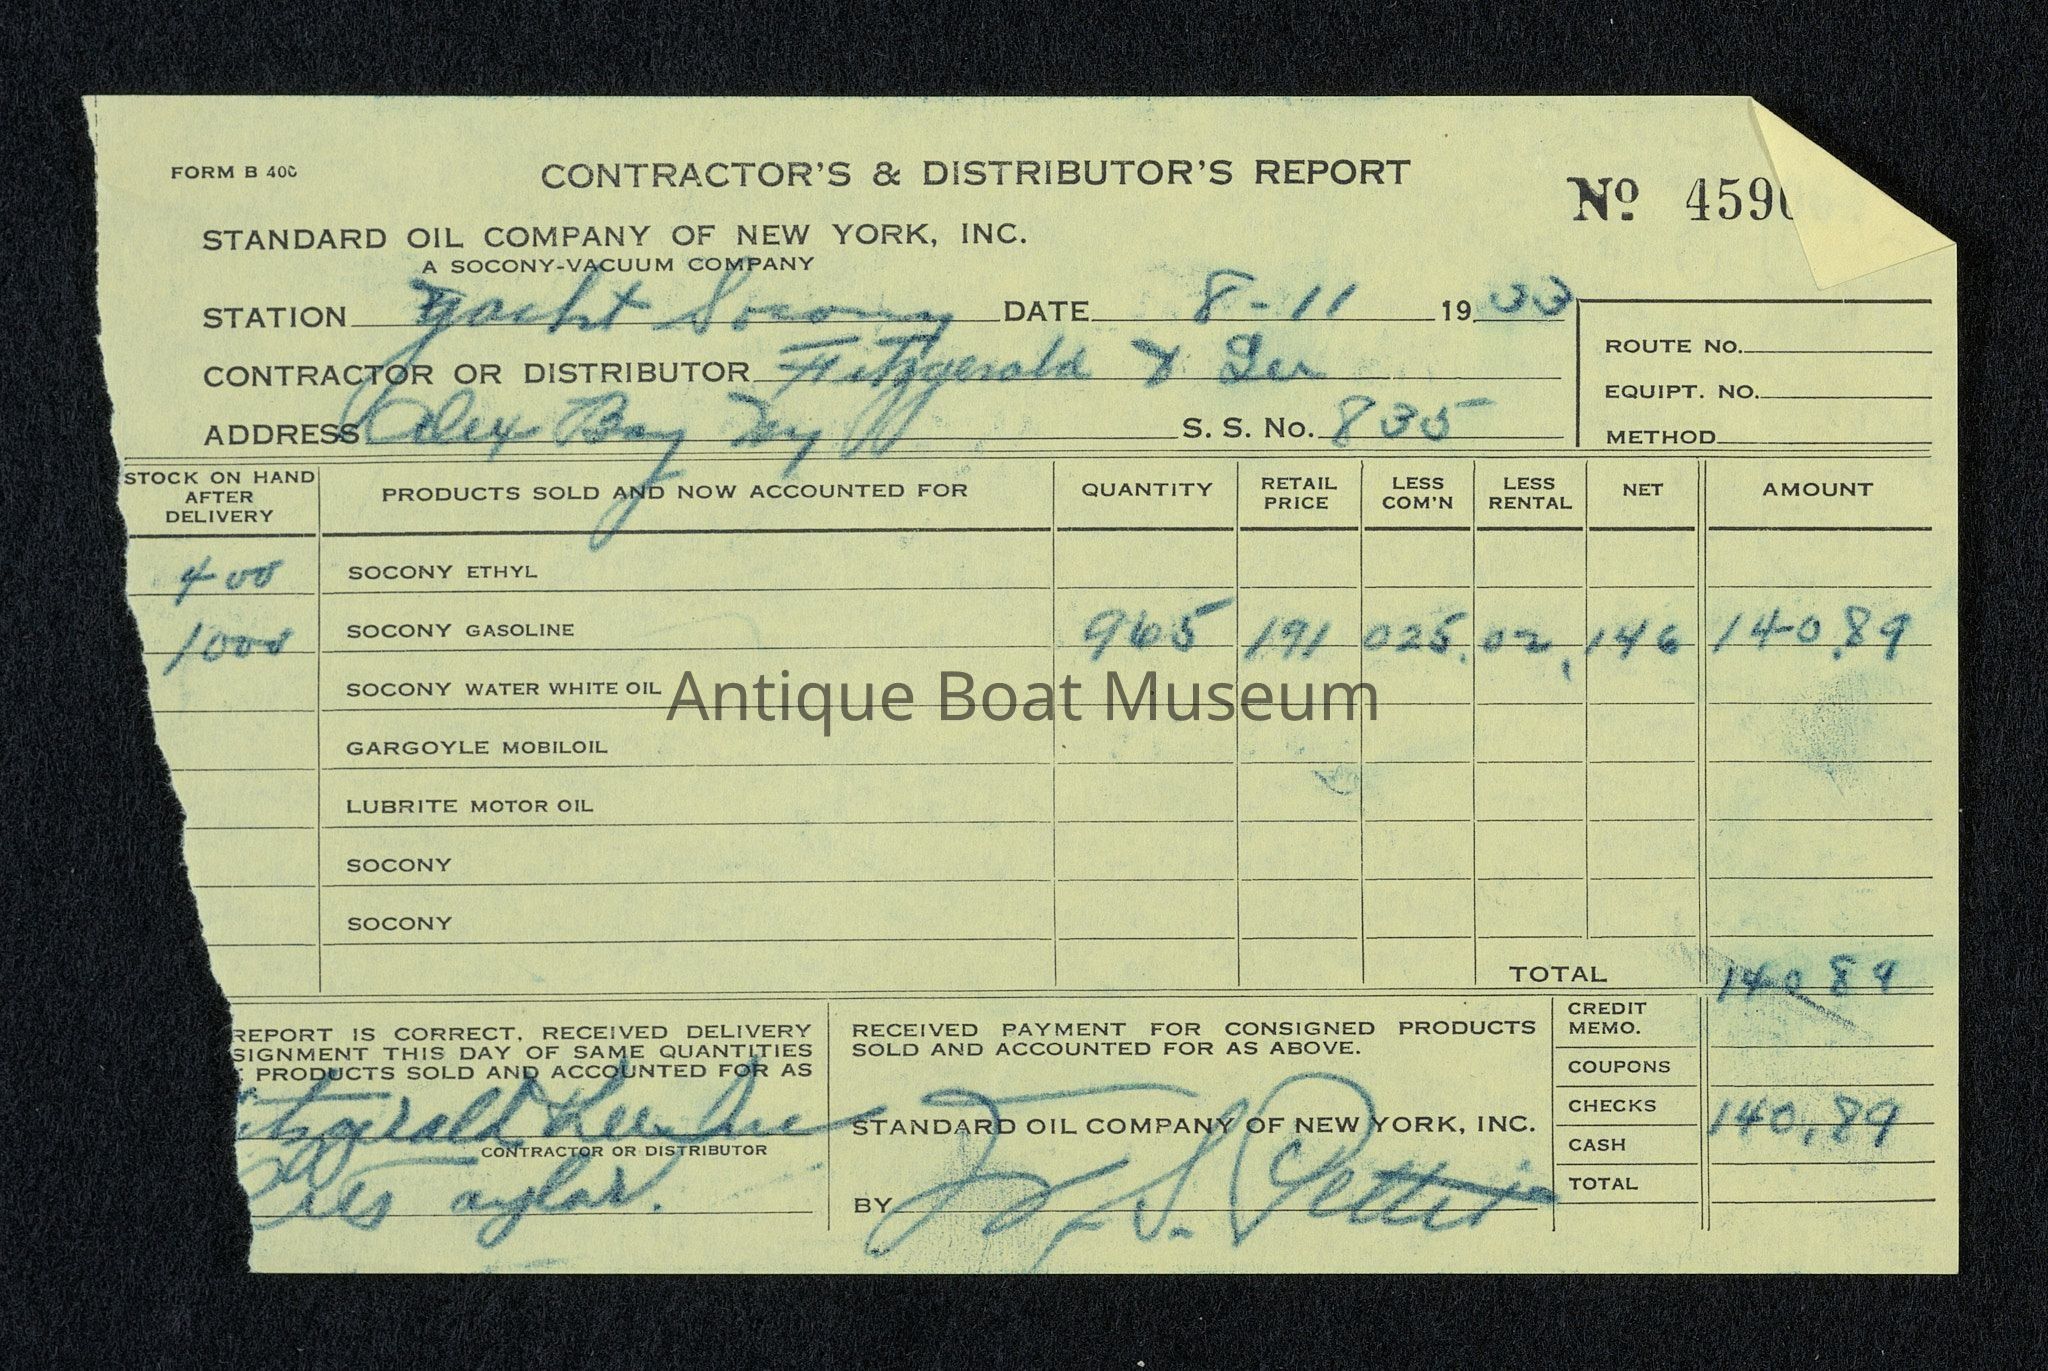 FORM B 400
CONTRACTOR'S & DISTRIBUTOR'S REPORT
No 4590
STANDARD OIL COMPANY OF NEW YORK, INC.
A SOCONY-VACUUM COMPANY
STATION Yacht Socony DATE 8-11 1933
CONTRACTOR OR DISTRIBUTOR Fitzgerald &
ADDRESS Alex Bay Ny S. S. No. 835
ROUTE No.
EQUIPT. NO.
METHOD
STOCK ON HAND AFTER DELIVERY PRODUCTS SOLD AND NOW ACCOUNTED FOR QUANTITY RETAIL PRICE LESS COM'N LESS RENTAL NET AMOUNT
400 SOCONY ETHYL
1000 SOCONY GASOLINE 965 191 025 .02 .146 140.89
SOCONY WATER WHITE OIL
Antique Boat Museum
GARGOYLE MOBILOIL
LUBRITE MOTOR OIL
SOCONY
SOCONY
TOTAL 140 89
REPORT IS CORRECT, RECEIVED DELIVERY
SIGNMENT THIS DAY OF SAME QUANTITIES
PRODUCTS SOLD AND ACCOUNTED FOR AS
itzgerald & Lee Inc
CONTRACTOR OR DISTRIBUTOR
RECEIVED PAYMENT FOR CONSIGNED PRODUCTS
SOLD AND ACCOUNTED FOR AS ABOVE.
STANDARD OIL COMPANY OF NEW YORK, INC.
BY
CREDIT MEMO.
COUPONS
CHECKS 140.89
CASH
TOTAL